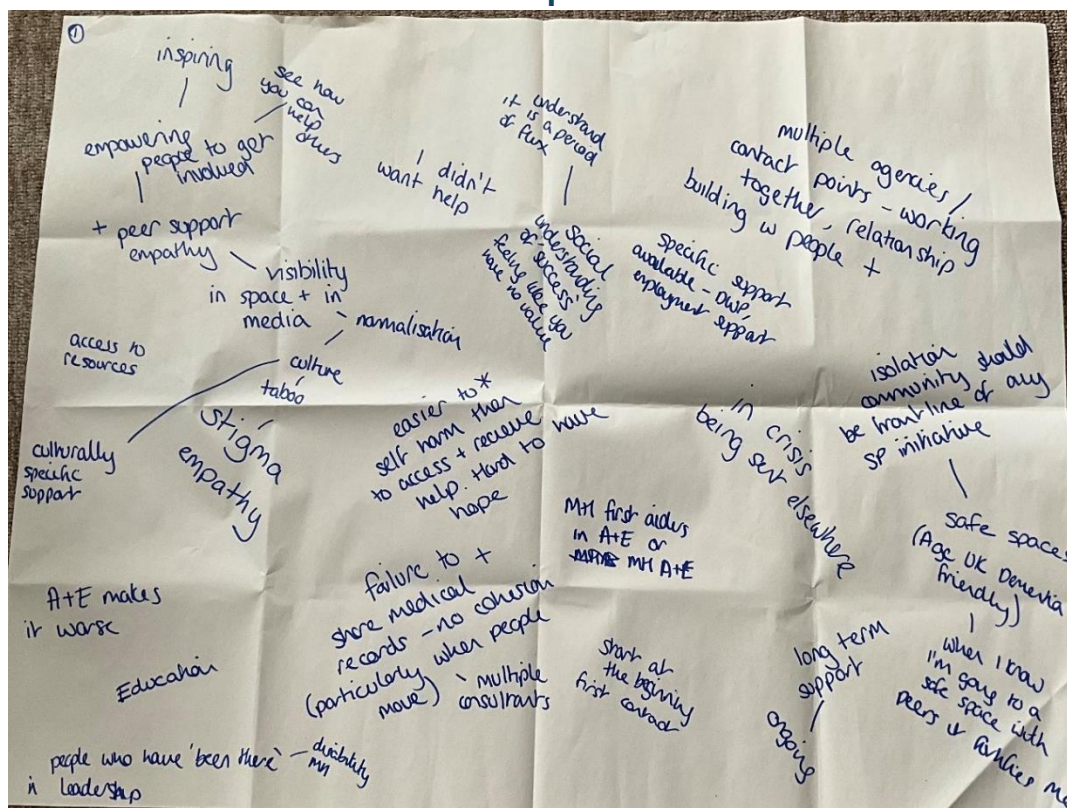 1
inspiring
see how
you can
help
others
empowering
people to get
involved
+ peer support
empathy
visibility
in space + in
media
normalisation
culture
taboo
Stigma
empathy
access to
resources
culturally
specific
support
I didn't
want help
understand
it is a period
of flux
Social
understanding
of 'success'
feeling like you
have no value
multiple agencies /
contact points - working
together, relationship
building w people +
specific support
available - DWP,
employment support
easier to *
self harm then
to access + recieve
help. Hard to have
hope
in crisis
being sent elsewhere
isolation
community should
be frontline of any
SP initiative
safe spaces
(Age UK Dementia
friendly)
when I know
I'm going to a
safe space with
peers it
MH first aiders
in A+E or
MH A+E
A+E makes
it worse
Education
failure to +
share medical
records - no cohesion
(particularly when people
move)
multiple
consultants
start at
the beginning
first contact
long term
support
ongoing
people who have 'been there'
in leadership
disability
MH